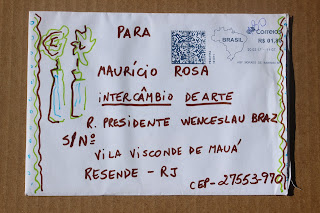 PARA
BRASIL
Correios
MAURÍCIO ROSA
INTERCÂMBIO DE ARTE
R. PRESIDENTE WENCESLAU BRAZ
S/Nº
VILA VISCONDE DE MAUÁ
RESENDE - RJ
CEP-27553-970